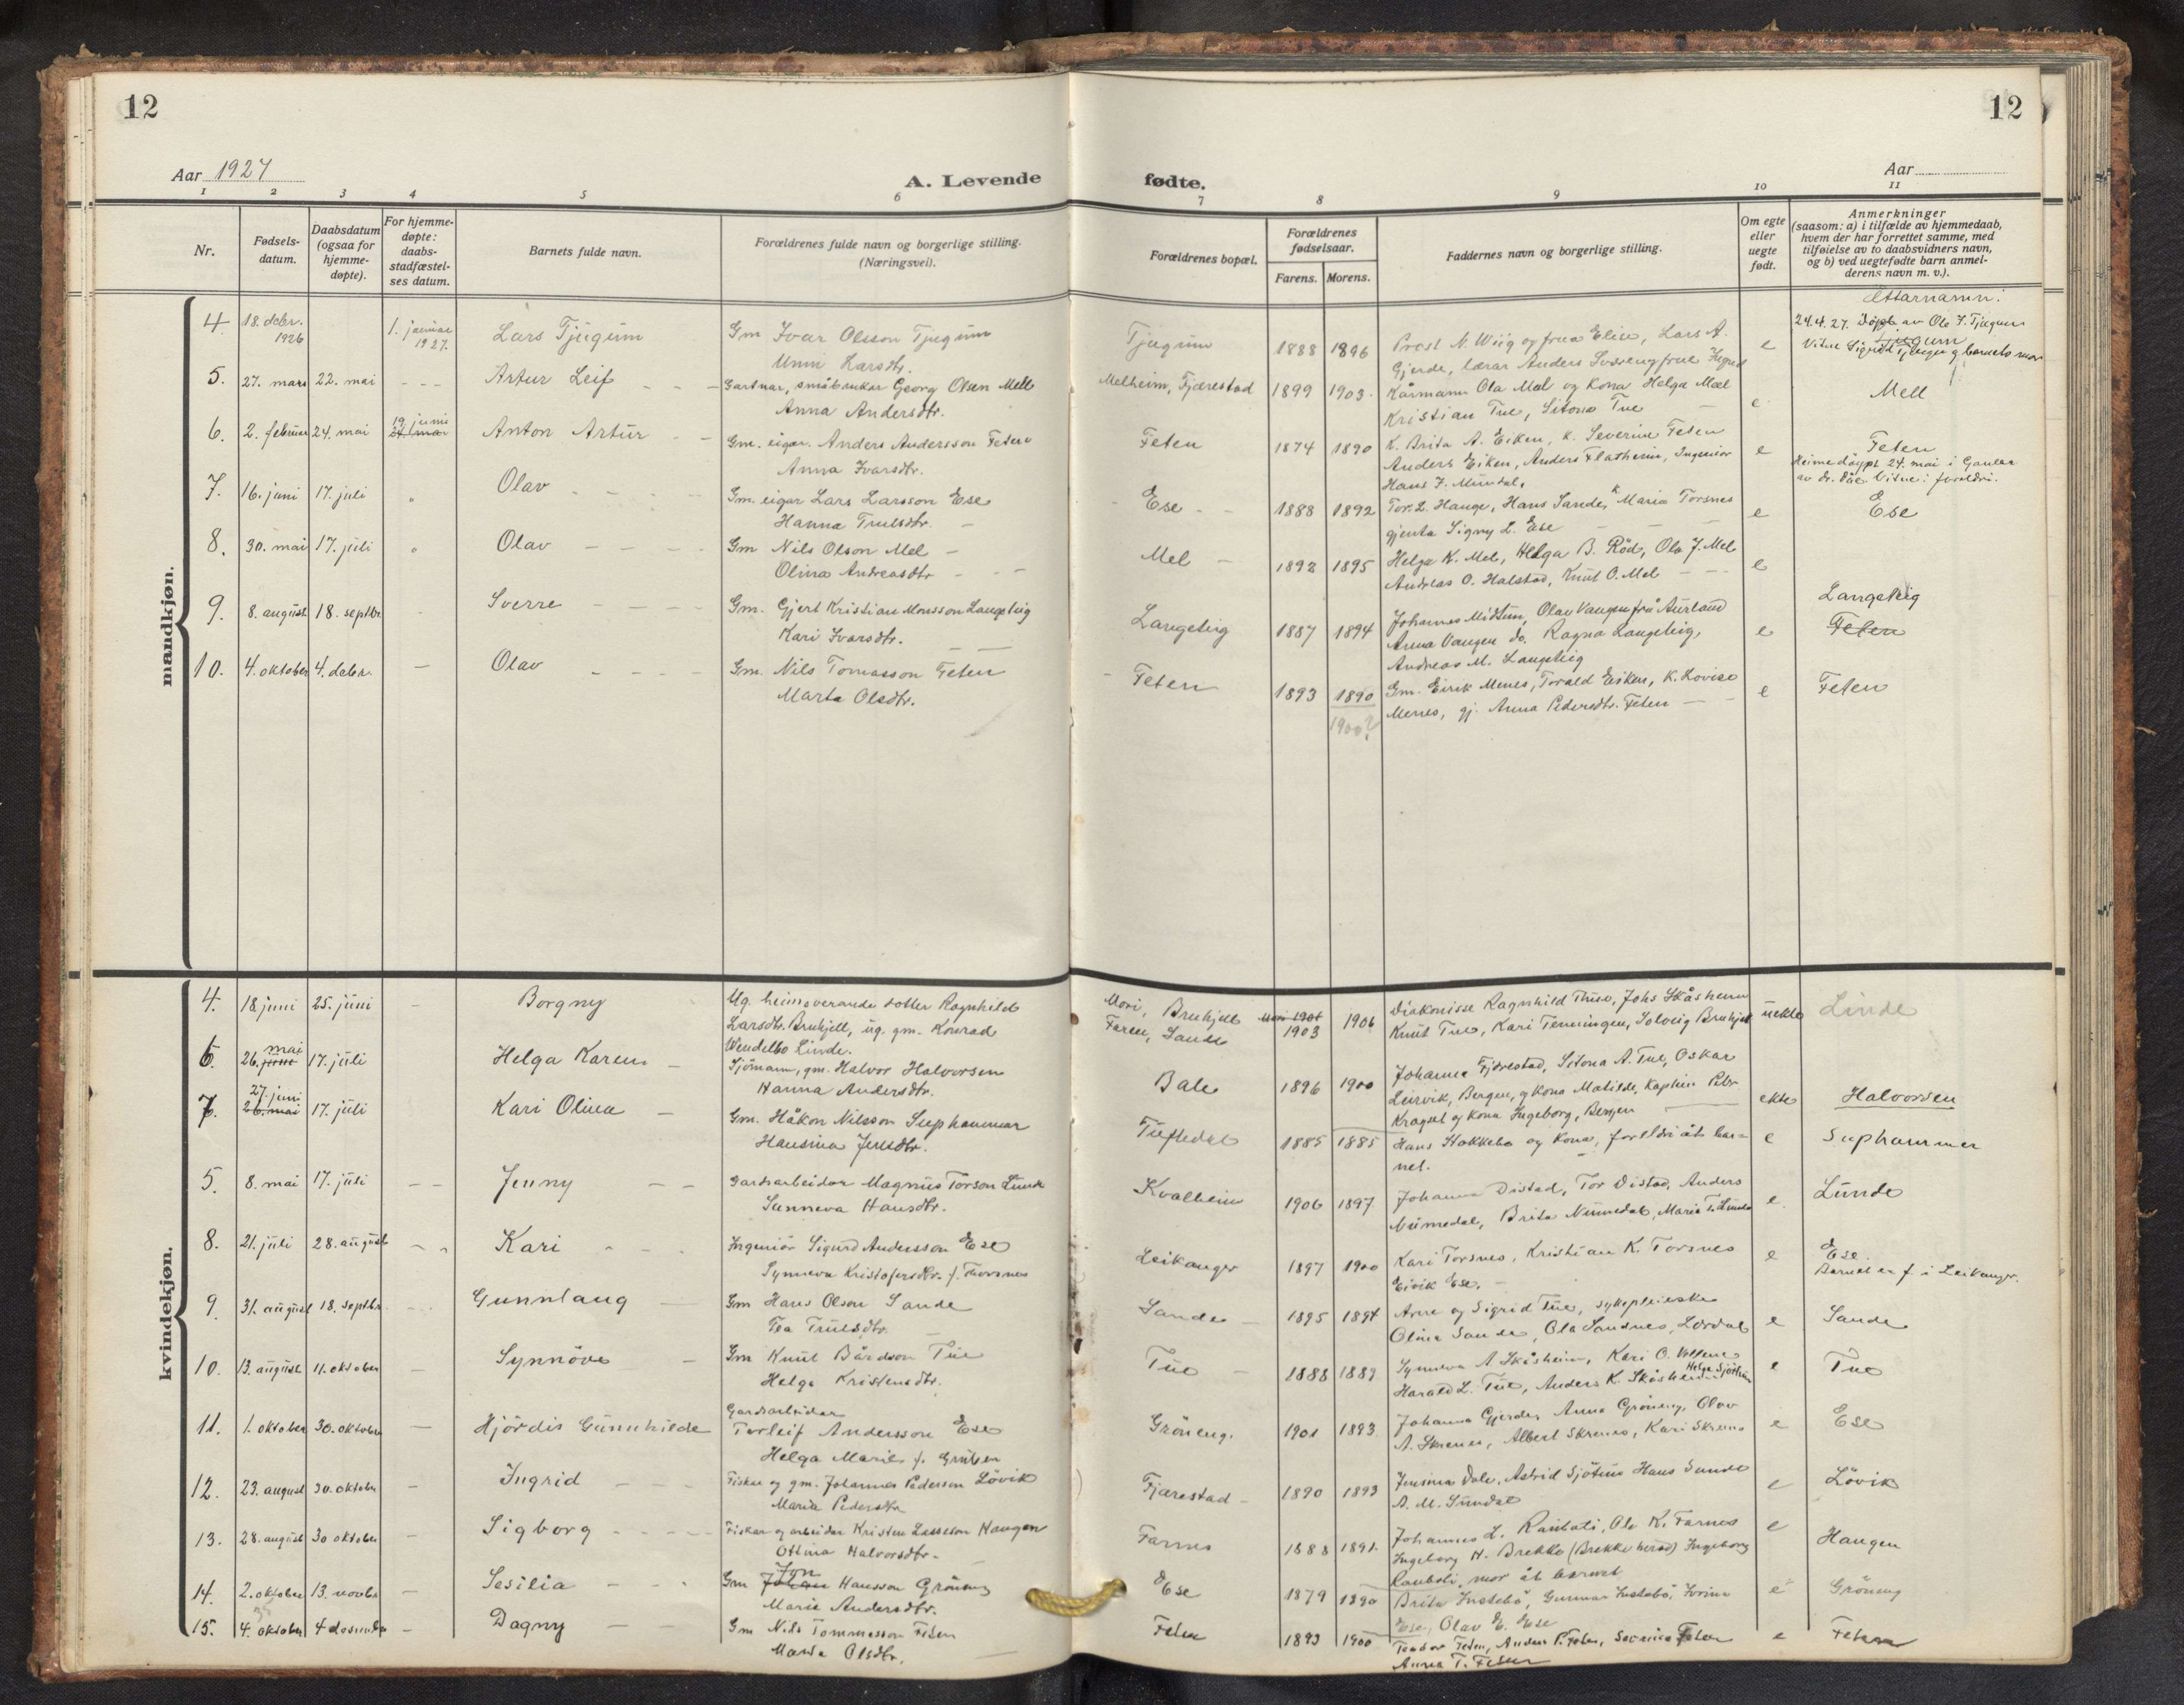 12
12
Aar 1927
A. Levende
fødte.
Aar
1 2 3 4 5 6 7 8 9 10 11
Nr.
Fødsels-
datum.
Daabsdatum
(ogsaa for
hjemme-
døpte).
For hjemme-
døpte:
daabs-
stadfæstel-
ses datum.
Barnets fulde navn.
Forældrenes fulde navn og borgerlige stilling.
(Næringsvei).
Forældrenes bopæl.
Forældrenes
fødselsaar.
Farens. Morens.
Faddernes navn og borgerlige stilling.
Om egte
eller
uegte
født.
Anmerkninger
(saasom: a) i tilfælde av hjemmedaab,
hvem der har forrettet samme, med
tilføielse av to daabsvidners navn,
og b) ved uegtefødte barn anmel-
derens navn m. v.).
Ettarnamn:
mandkjøn.
4. 18. debr. 1926 1. januar 1927. Lars Tjugum Gm Ivar Olsson Tjugum
Unni Larsdtr.
Tjugum 1888 1896 Prost N. Wiig og frua Elise, Lars A.
Gjerde, lærar Anders
e
24.4.27. Döpt av Ole J. Tjugum
Tjugum
5. 27. mars 22. mai - - - Artur Leif Gartnar, småbrukar Georg Olsen Mell
Anna Andersdtr.
Melheim, Fjærestad 1899 1903. Kårmann Ola Mæl og kona Helga Mæl
Kristian Tue, Sitona Tue
e.
Mell
6. 2. februar 24. mai 19. juni 24. mai Anton Artur Gm. eigar. Anders Andersson Feten
Anna Ivarsdtr.
Feten 1874 1890 K. Brita A. Eiken, k. Severine Feten
Anders Eiken, Anders Flatheim, Ingeniör
Hans J. Mundal.
e
Feten
Heimedöypt 24. mai i Gaular
av dr. Däe. Vitne: foreldri.
7. 16. juni 17. juli Olav Gm. eigar Lars Larsson Ese
Hanna Trulsdtr.
Ese 1888 1892 Tor. L. Hauge, Hans Sande, k Maria Torsnes
gjenta Signy L. Ese
e
Ese
8. 30. mai 17. juli Olav Gm Nils Olson Mel
Olina Andreasdtr
Mel 1892 1895 Helga K. Mel, Helga B. Röd, Ola J. Mel
Andreas O. Halstad, Knut O. Mel
e
9. 8. august 18. septbr. Sverre Gm. Gjert Kristian Monsson Langeteig
Kari Ivarsdtr.
Langeteig 1887 1894 Johannes Midtun, Olav Vangen frå Aurland
Anna Vangen do. Ragna Langeteig,
Andreas M. Langeteig
e
Langeteig
Feten
10. 4. oktober 4. debr. Olav Gm. Nils Tomasson Feten
Marta Olsdtr.
Feten 1893 1890 Gm. Eirik Menes, Torald Eiken, K. Lovise
1900? Menes, gj. Anna Pedersdtr. Feten
e
Feten
kvindekjøn.
4. 18 juni 25. juni Borgny Ug. heimeverande dotter Ragnhild
Larsdtr. Bruhjell, ug. gm. Konrad
Wendelbo Linde.
Mori, Bruhjell
Faren, Sande
1903 1906 Diakonisse Ragnhild Thue, Johs Skåsheim
Knut Tue, Kari Tenningen, Solveig Bruhjell
uekte
Linde
6. 26. mai juni 17. juli Helga Karen Sjömann, gm. Halvor Halvorsen
Hanna Andersdtr.
Bale 1896 1900 Johanna Fjærestad, Sitona A. Tue, Oskar
Leirvik, Bergen, og kona Matilde, Kaptein Petr.
og kona Ingeborg, Bergen
ekte
Halvorsen
7. 27. juni 26. mai 17. juli Kari Olina Gm. Håkon Nilsson Suphammar
Hansina Jensdtr.
Tuftedal 1885 1885 Hans Stokkebø og kona, foreldri åt bar-
net.
e
Suphammer
5. 8. mai 17. juli Jenny Gardsarbeidar Magnus Torson Lunde
Sunneva Hansdtr.
Kvalheim 1906 1897 Johanna Distad, Tor Distad, Anders
Nummedal, Brita Nummedal, Maria T. Lunde
e.
Lunde
8. 21. juli 28. august Kari Ingeniör Sigurd Andersson Ese
Synneva Kristofersdtr. f. Thorsnes
Leikanger 1897 1900 Kari Torsnes, Kristian K. Torsnes
Eirik Ese.
e
Ese.
Barnet er f. i Leikanger.
9. 31. august 18. septbr. Gunnlaug Gm Hans Olson Sande
Tea Trulsdtr.
Sande 1895 1894 Arne og Sigrid Tue, sykepleieske
Olina Sande, Ola Sandnes, Lærdal
e
Sande
10. 13. august 11. oktober Synnöve Gm Knut Bårdson Tue
Helga Kristensdtr.
Tue 1888 1889 Synneva A Skåsheim, Kari O. Vollene
Harald L. Tue, Anders K. Skåsheim
e
Tue
11. 1. oktober 30. oktober Hjördis Gunnhilde Gardsarbeidar
Torleif Andersson Ese
Helga Marie f. Grüben
Gröneng. 1901 1893 Johanna Gjerde, Anna Gröneng, Olav
A. Skrenes, Albert Skrenes, Kari Skrenes
e
Ese
12. 23. august 30. oktober Ingrid Fiskar og gm. Johannes Pederson Lövik
Maria Pederska
Fjærestad 1890 1893 Jensina Dale, Astrid Sjötun Hans Sunde
A. M. Sundal
e
Lövik
13. 28. august 30 oktober Sigborg Fiskar og arbeidar Kristen Lasseson Haugen
Ottina Halvorsdtr.
Farnes 1888 1891. Johannes L. Rauboti, Ole K. Farnes
Ingeborg H. Brekke (Brekke herad) Ingeborg
Rauboti, mor åt barnet
e
Haugen
14. 2. oktober 13. novbr Sesilia Gm Jon Johan Hansson Gröneng
Marie Andersdtr.
Ese 1879 1890 Brita Instebö, Gunnar Instebö,
Ese, Olav E. Ese
e
Gröneng
15. 4. oktober 4 desember Dagny Gm Nils Tommasson Feten
Marta Olsdtr.
Feten 1893 1900 Feten, Anders P. Feten, Severine Feten
Anna T. Feten
e
Feten